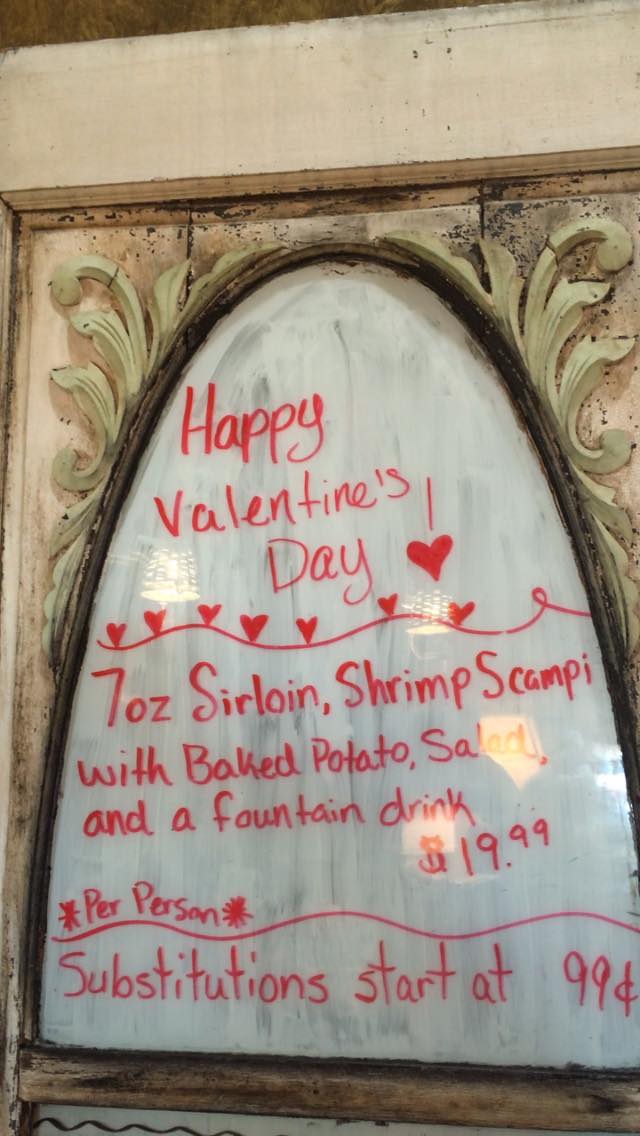 Happy
Valentine's
Day!
7oz Sirloin, Shrimp Scampi
with Baked Potato, Salad,
and a fountain drink
$19.99
*Per Person*
Substitutions start at 99¢